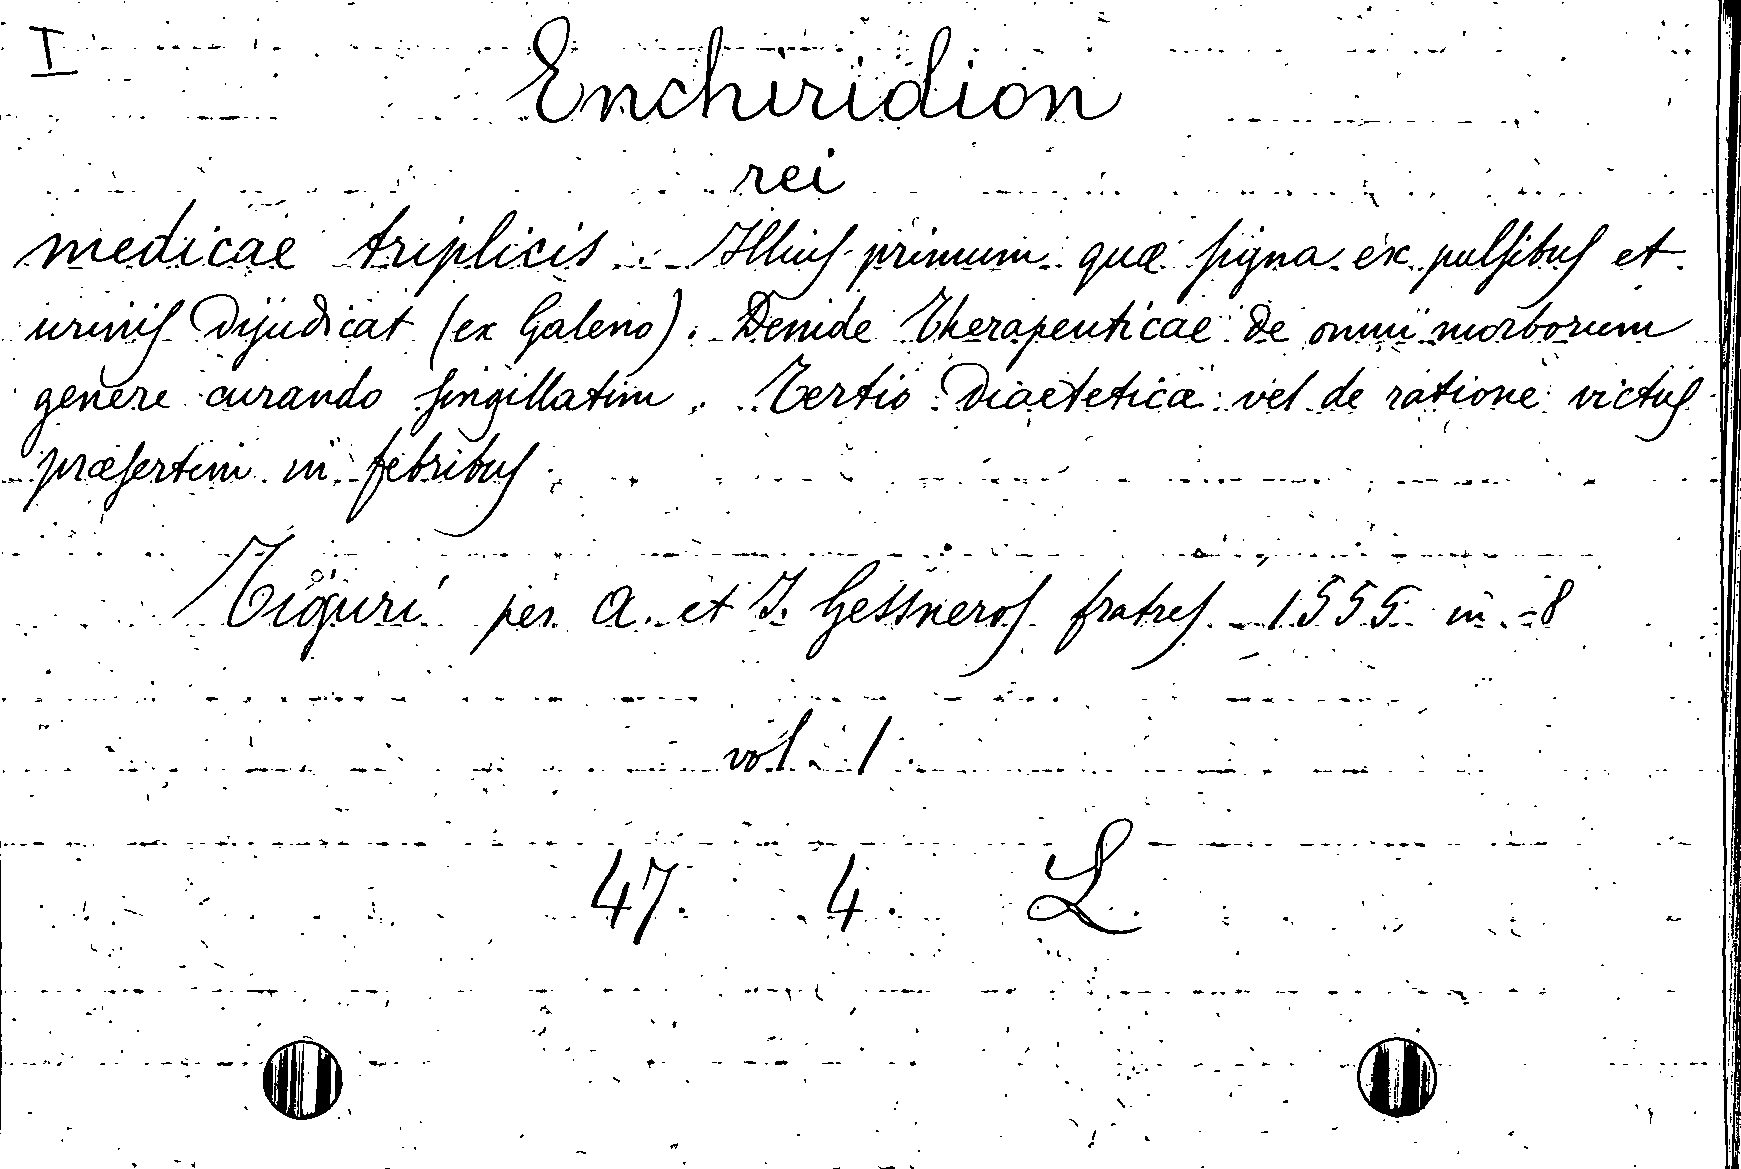 I
Enchiridion
rei
medicae triplicis. Illius primum quæ signa ex pulsibus et
urinis dijudicat (ex Galeno). Deinde Therapeuticae de omni morborum
genere curando singillatim. Tertio Diaeteticæ vel de ratione victus
præsertim in febribus.
Tiguri per A. et J. Gessneros fratres 1555 in-8
vol. 1
47. 4. L